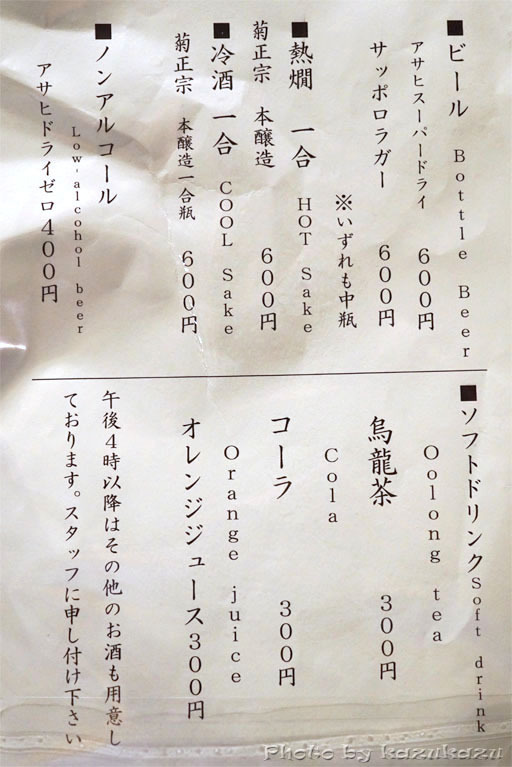 ■ビール Bottle Beer
アサヒスーパードライ 600円
サッポロラガー 600円
※いずれも中瓶
■熱燗 一合 HOT Sake
菊正宗 本醸造 600円
■冷酒 一合 COOL Sake
菊正宗 本醸造一合瓶 600円
■ノンアルコール
Low-alcohol beer
アサヒドライゼロ400円
■ソフトドリンクSoft drink
Oolong tea
烏龍茶 300円
Cola
コーラ 300円
Orange juice
オレンジジュース300円
午後4時以降はその他のお酒も用意し
ております。スタッフに申し付け下さい
Photo by kazukazu